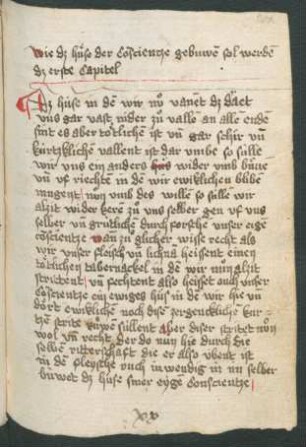 wie dz huse der Cosciencze gebuwen sol werde
dz erste Capitel
Dz huse in dē wir nu̅ vanet dz gaet
vns gar vast nider zu valle an alle ende
sint es aber totliche ist vn̄ gar schir vn̄
kurtzkliche vallent ist dar vmbe so sülle
wir vns ein anders hus wider vmb buwe
vn̄ vf riechte in dē wir ewiklichen blibe
mugent vmb des wille so sülle wir
alzit wider kere zu̅ vns selber gen vf vns
selber vn̄ grutliche durch forsche vnser eige
cosciencze wan zu glicher wise recht als
wir vnser fleisch vn̄ licham heisent einen
totlichen tabernackel in dē wir nu̅ alzit
stritent vn̄ fechtent also heiset auch vnser
Cosciencze ein ewiges huse in dē wir hie vn̄
dort ewikliche noch diser zergenckliche kur
tze strite süllent aber diser stritet nu̅
wol vn̄ recht der do nu̅ hie durch die
selbē ritterschaft die er also vbent ist
in dē fleysche ouch inwendig in im selber
buwet dz huse siner eyge Conscientze
xv